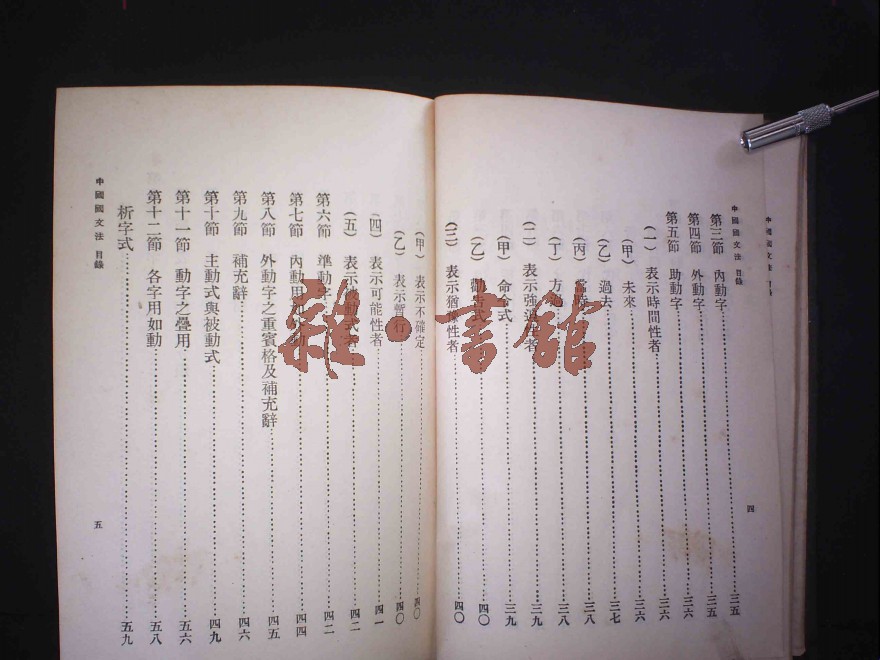 中國國文法 目錄
第三節 內動字 三五
第四節 外動字 三五
第五節 助動字 三六
(一) 表示時間性者 三六
(甲) 未來 三六
(乙) 過去 三七
(丙) 三八
(丁) 方過 三八
(二) 表示強性者 三九
(甲) 命令式 三九
(乙) 勸告式 四〇
(三) 表示猶豫性者 四〇
四
(甲) 表示不確定 四〇
(乙) 表示暫行 四〇
(四) 表示可能性者 四一
(五) 表示被動式者 四二
第六節 準動字 四二
第七節 內動用如外動 四四
第八節 外動字之重賓格及補充辭 四五
第九節 補充辭 四六
第十節 主動式與被動式 四九
第十一節 動字之疊用 五六
第十二節 各字用如動 五八
析字式 五九
中國國文法 目錄
五
雜·書館